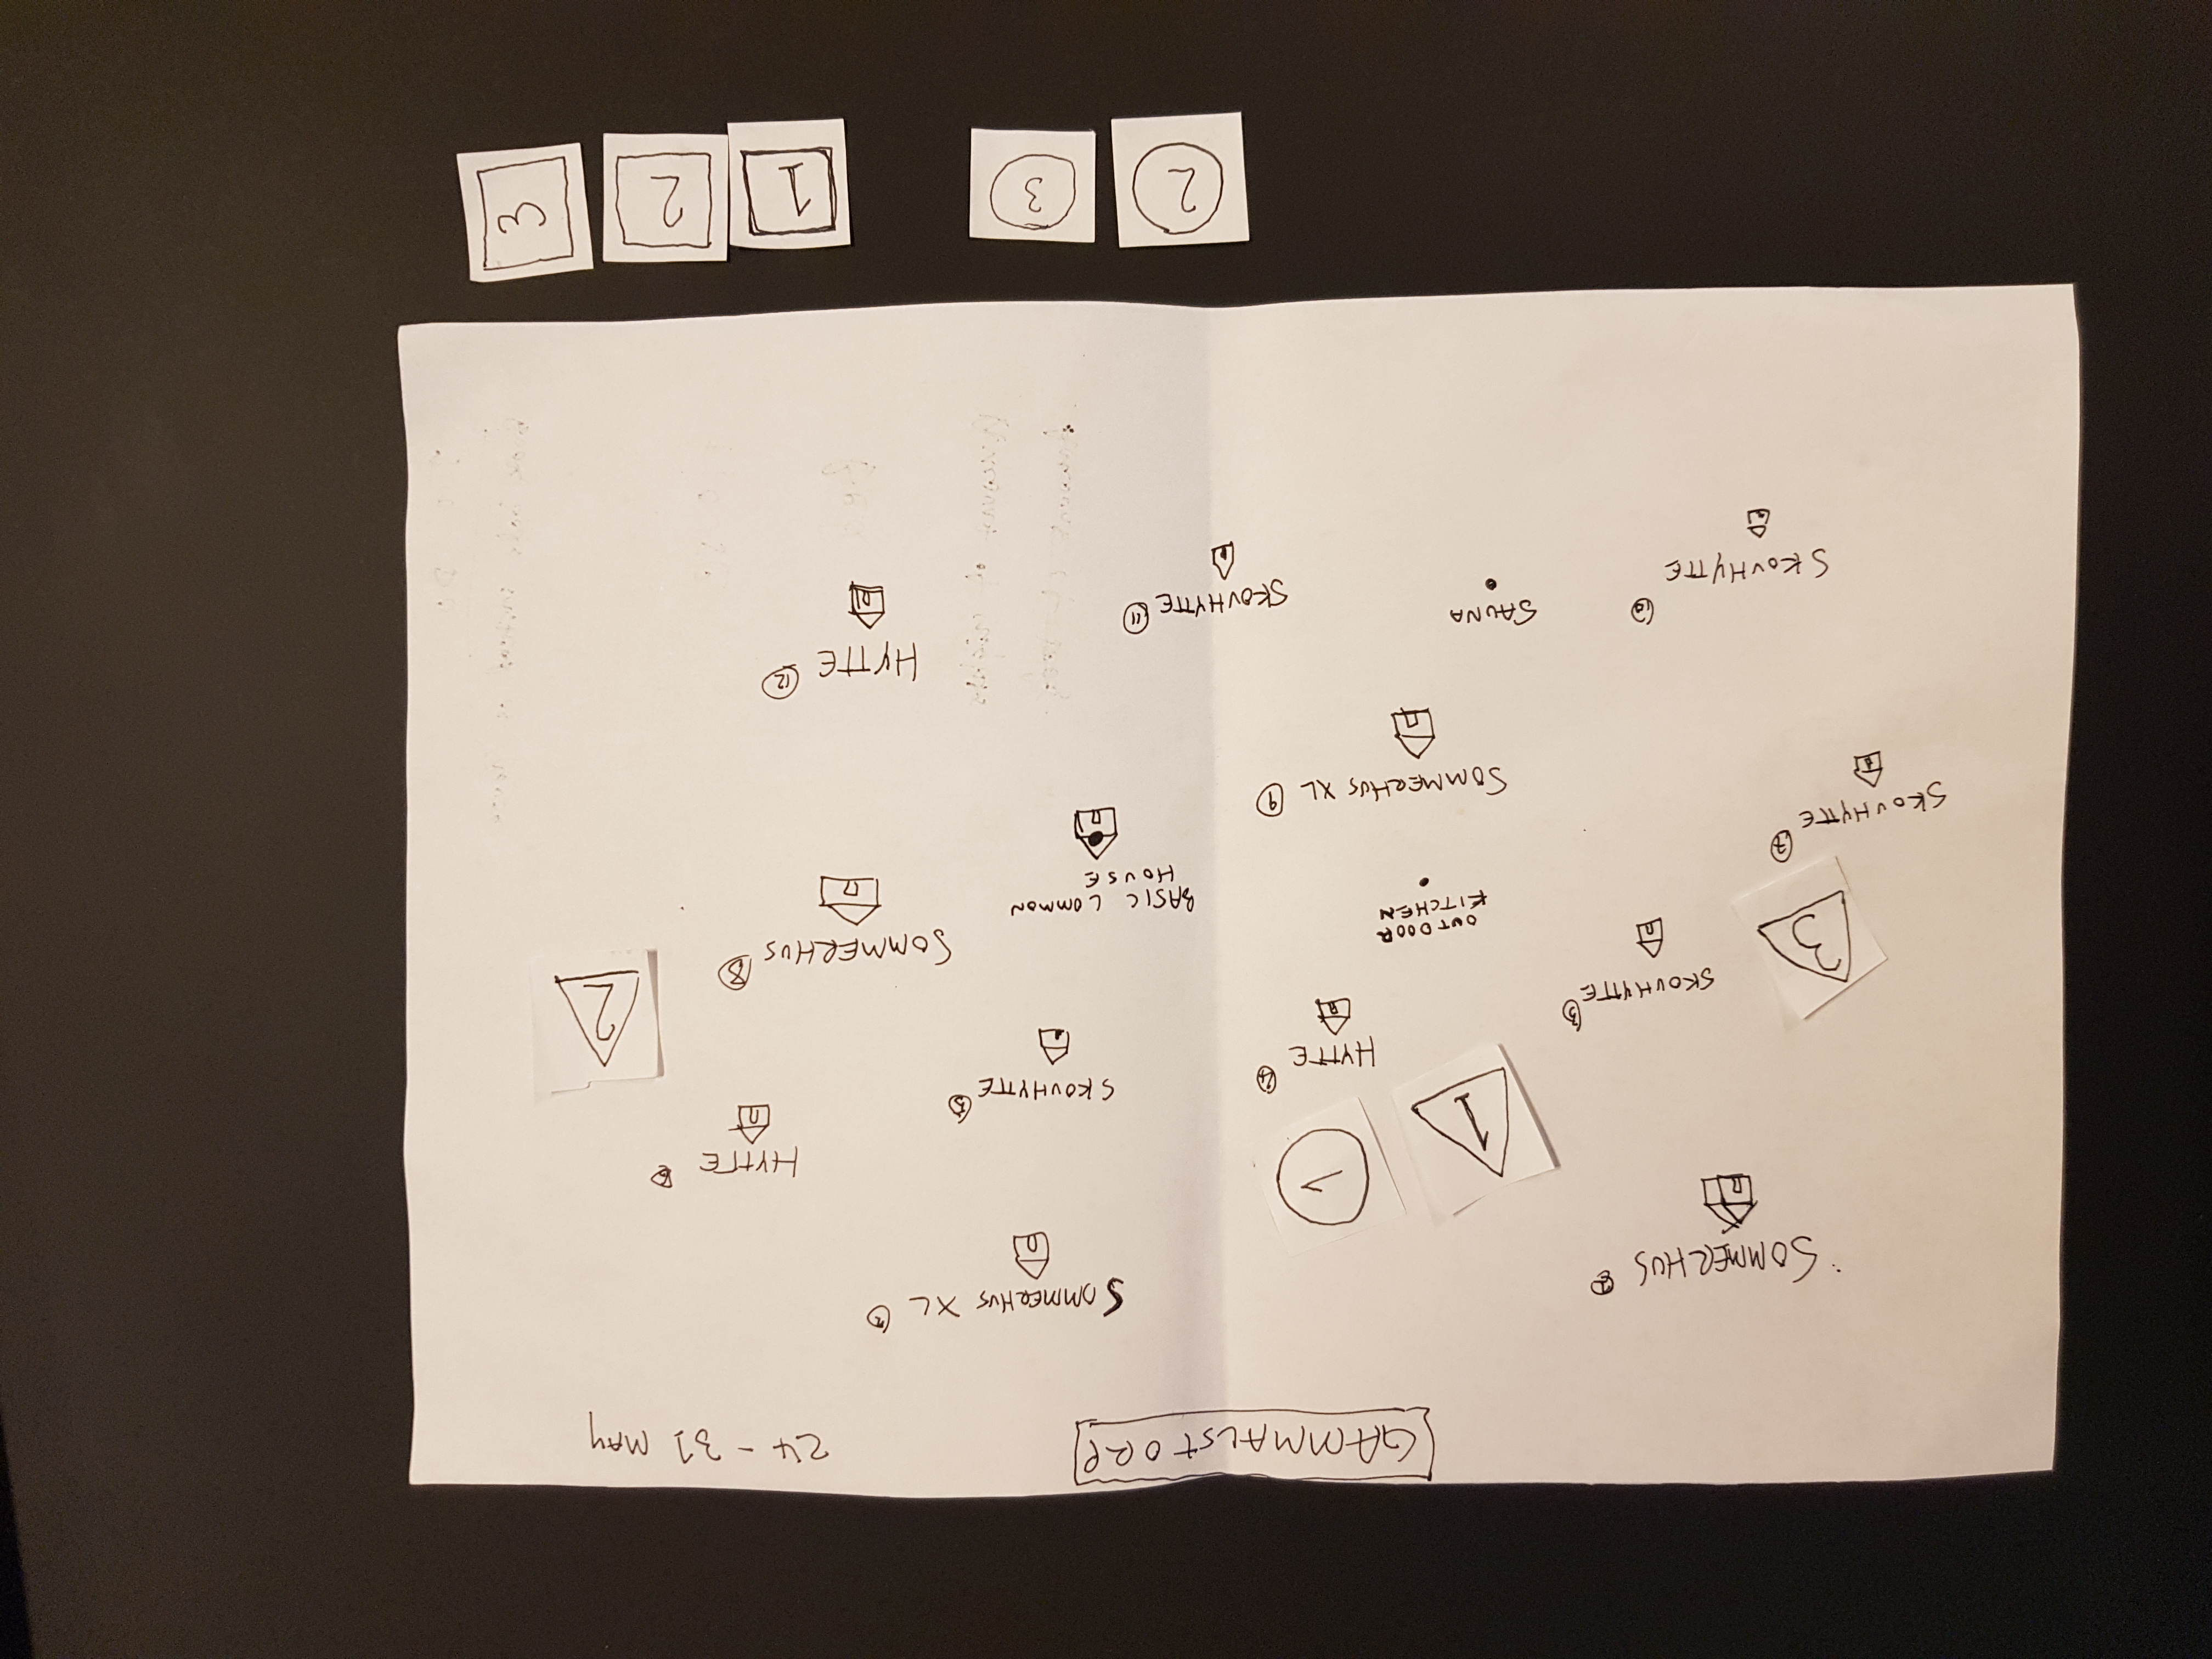 GAMMALSTORP
24 - 31 MAY
SOMMERHUS
SOMMERHUS XL
1
1
HYTTE
SKOVHYTTE 5
HYTTE 4
SKOVHYTTE 3
3
2
SOMMERHUS 8
OUTDOOR
KITCHEN
BASIC COMMON
HOUSE
SKOVHYTTE 7
SOMMERHUS XL 9
HYTTE 12
SKOVHYTTE 10
SAUNA
SKOVHYTTE 11
2
3
1
2
3